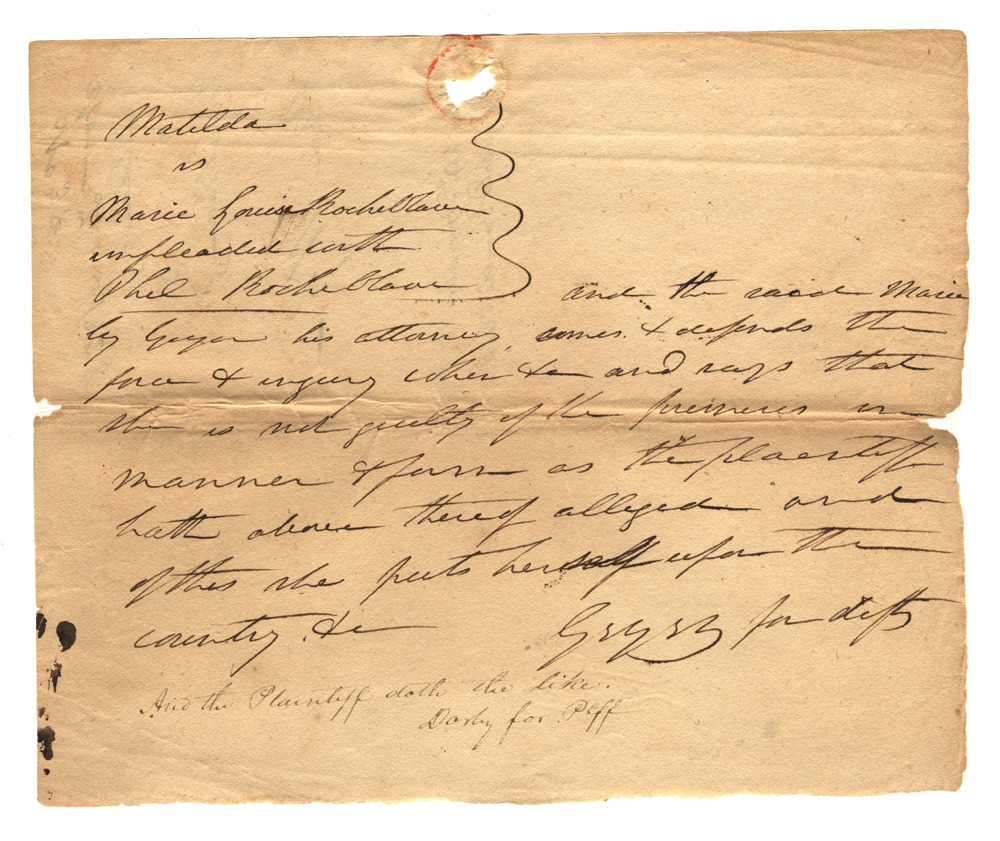 Matilda
vs
Marie Louise Rocheblave
impleaded with
Phil Rocheblave
and the said Marie
by Geyer his attorney, comes & defends the
force & injury when &c and says that
she is not guilty of the premises in
manner & form as the plaintiff
hath above thereof alleged and
of this she puts herself upon the
country. &c Geyer for deft
And the Plaintiff doth the like.
Darby for Plff